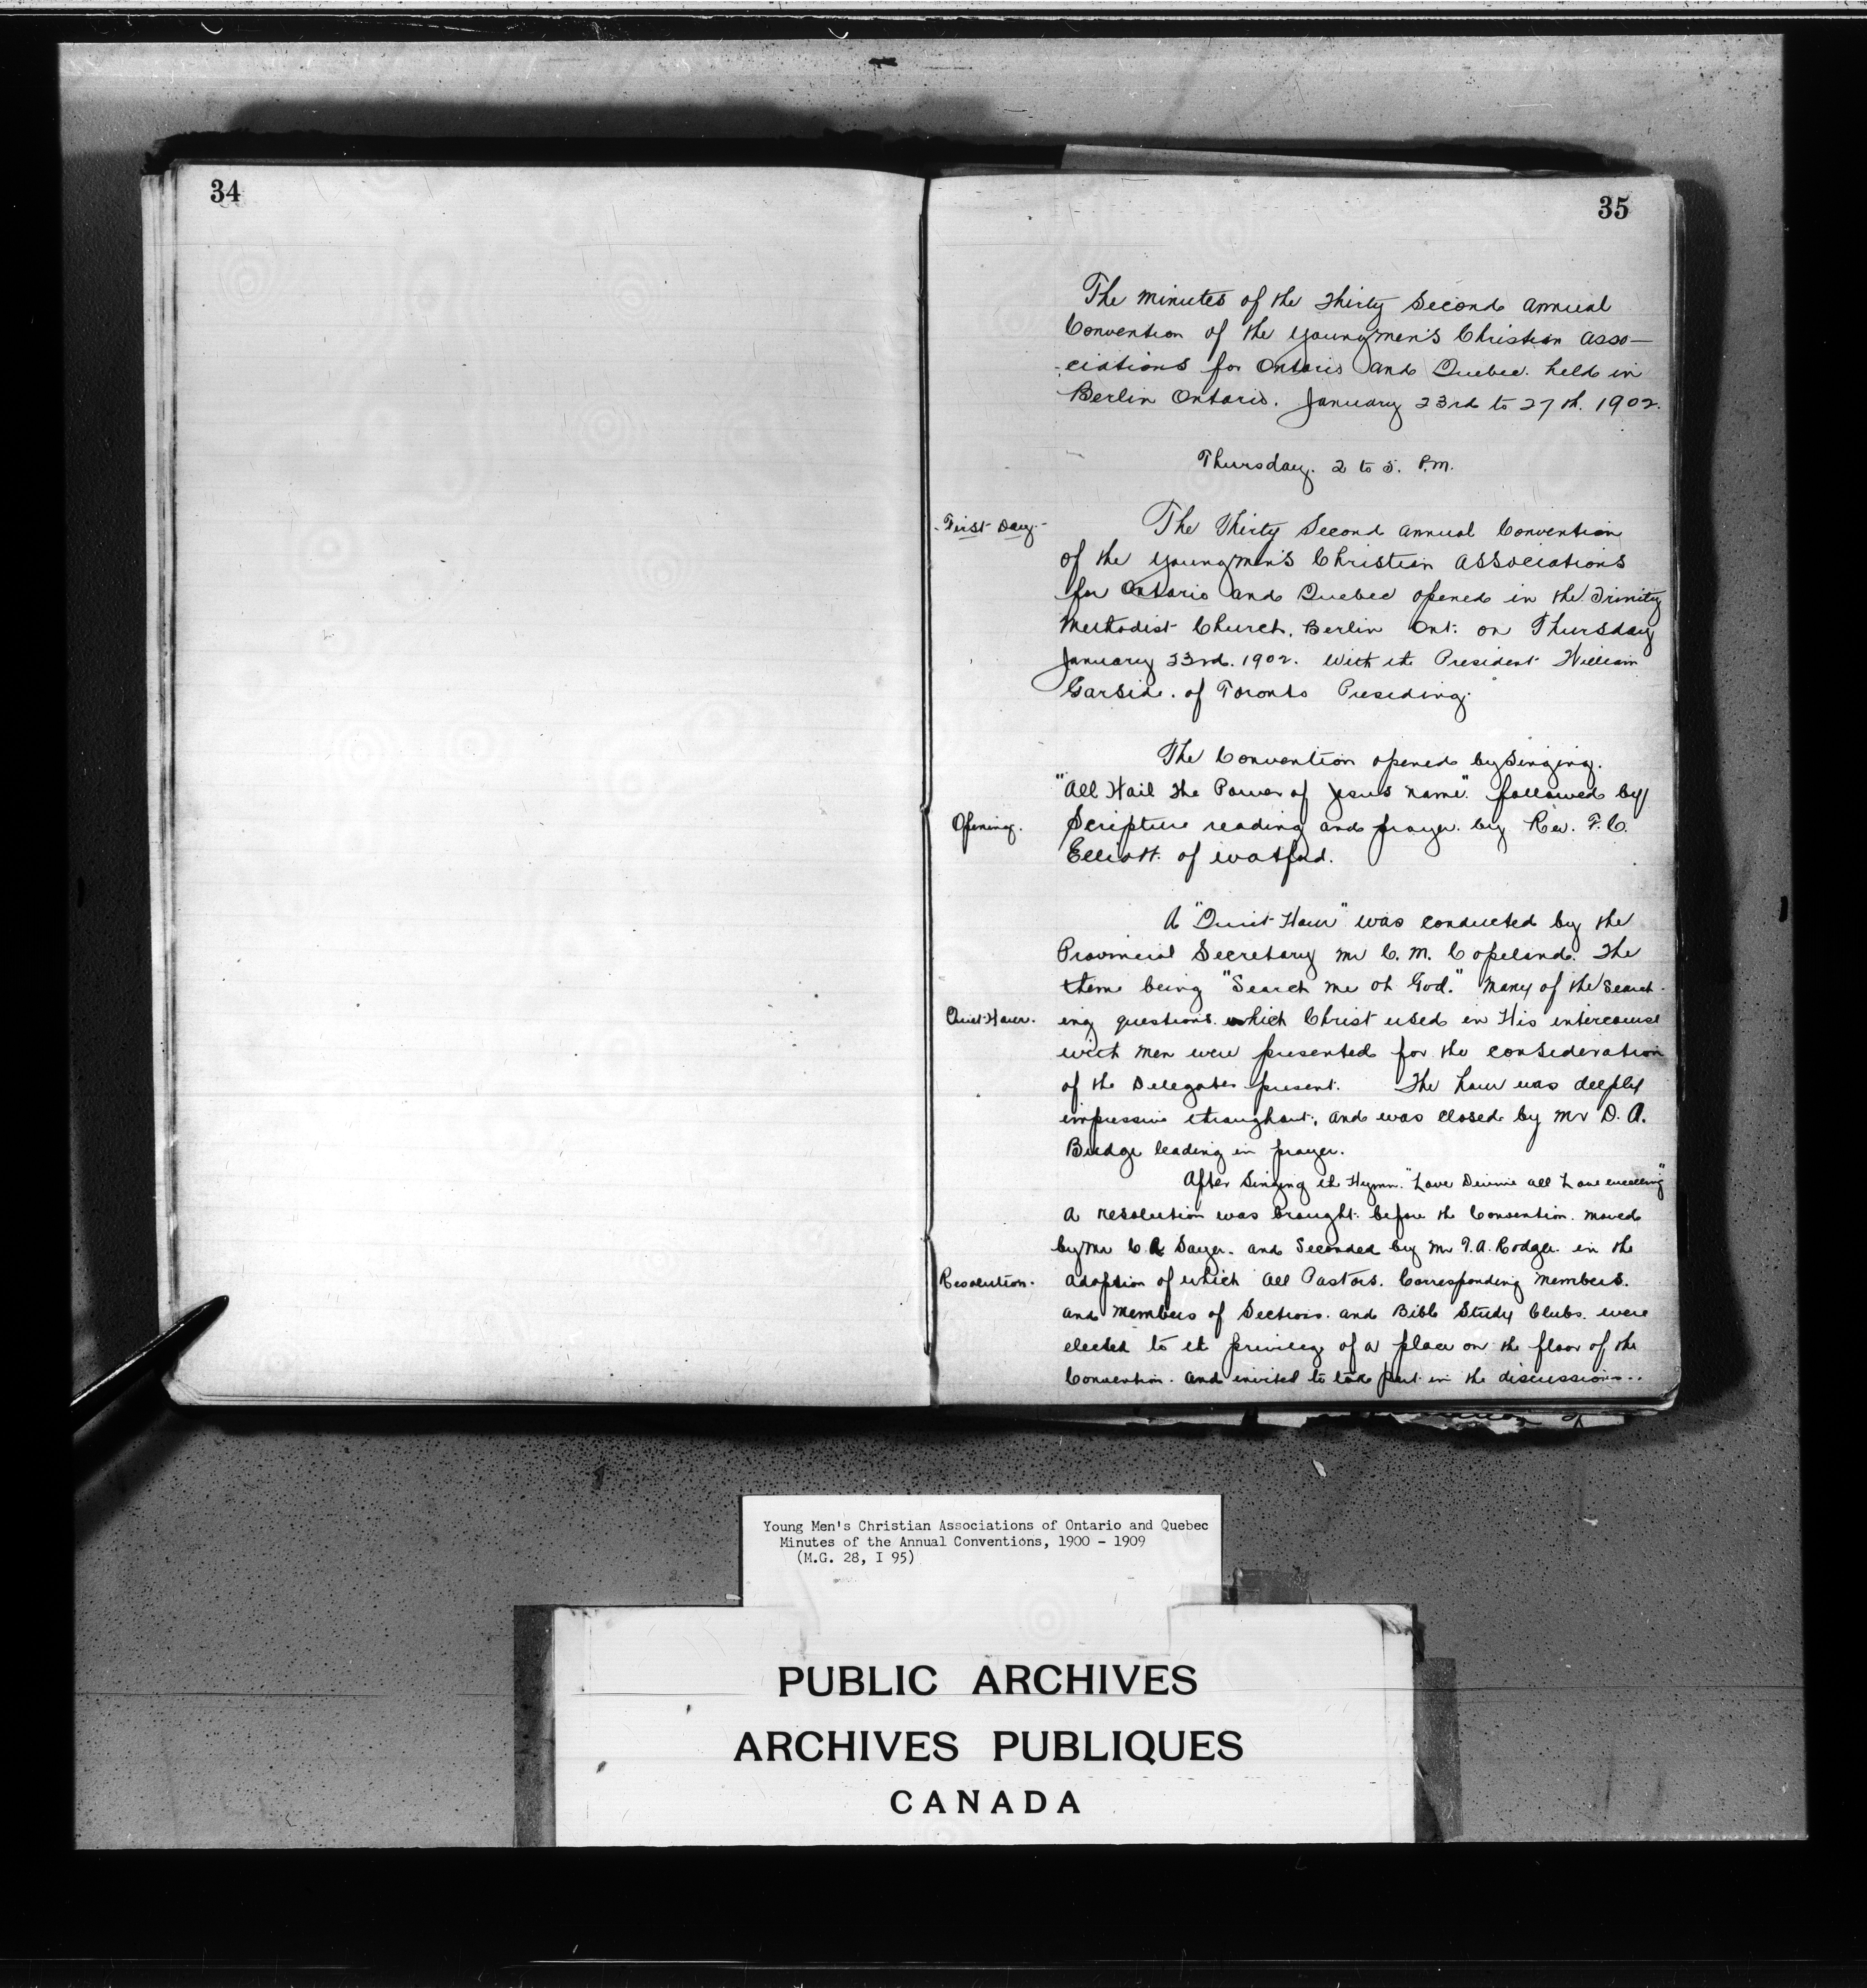 34
35
The minutes of the Thirty Second annual
Convention of the Young men's Christian Asso-
-ciations for Ontario and Quebec. held in
Berlin Ontario. January 23rd to 27th. 1902.
Thursday. 2 to 5. P.M.
-First Day.-
The Thirty Second annual Convention
of the Young men's Christian Associations
for Ontario and Quebec opened in the Trinity
Methodist Church, Berlin Ont: on Thursday
January 23rd. 1902. with the President William
Garside. of Toronto Presiding.
The Convention opened by singing.
"All Hail the Power of Jesus name". followed by
Opening.
Scripture reading and prayer. by Rev. F. C.
Elliott. of Watford.
A "Quiet Hour" was conducted by the
Provincial Secretary Mr C. M. Copeland. The
theme being "Search me oh God." Many of the search-
Quiet Hour.
ing questions which Christ used in His intercourse
with men were presented for the consideration
of the Delegates present. The hour was deeply
impressive throughout, and was closed by Mr D. A.
Budge leading in prayer.
After Singing the Hymn. "Love Divine all Love excelling"
A resolution was brought before the Convention. moved
by Mr C. R. Sayer. and Seconded by Mr T. A. Rodger in the
Resolution.
adoption of which all Pastors. Corresponding members.
and members of Sections. and Bible Study Clubs. were
elected to the privilege of a place on the floor of the
Convention. and invited to take part in the discussions..
Young Men's Christian Associations of Ontario and Quebec
Minutes of the Annual Conventions, 1900 - 1909
(M.G. 28, I 95)
PUBLIC ARCHIVES
ARCHIVES PUBLIQUES
CANADA